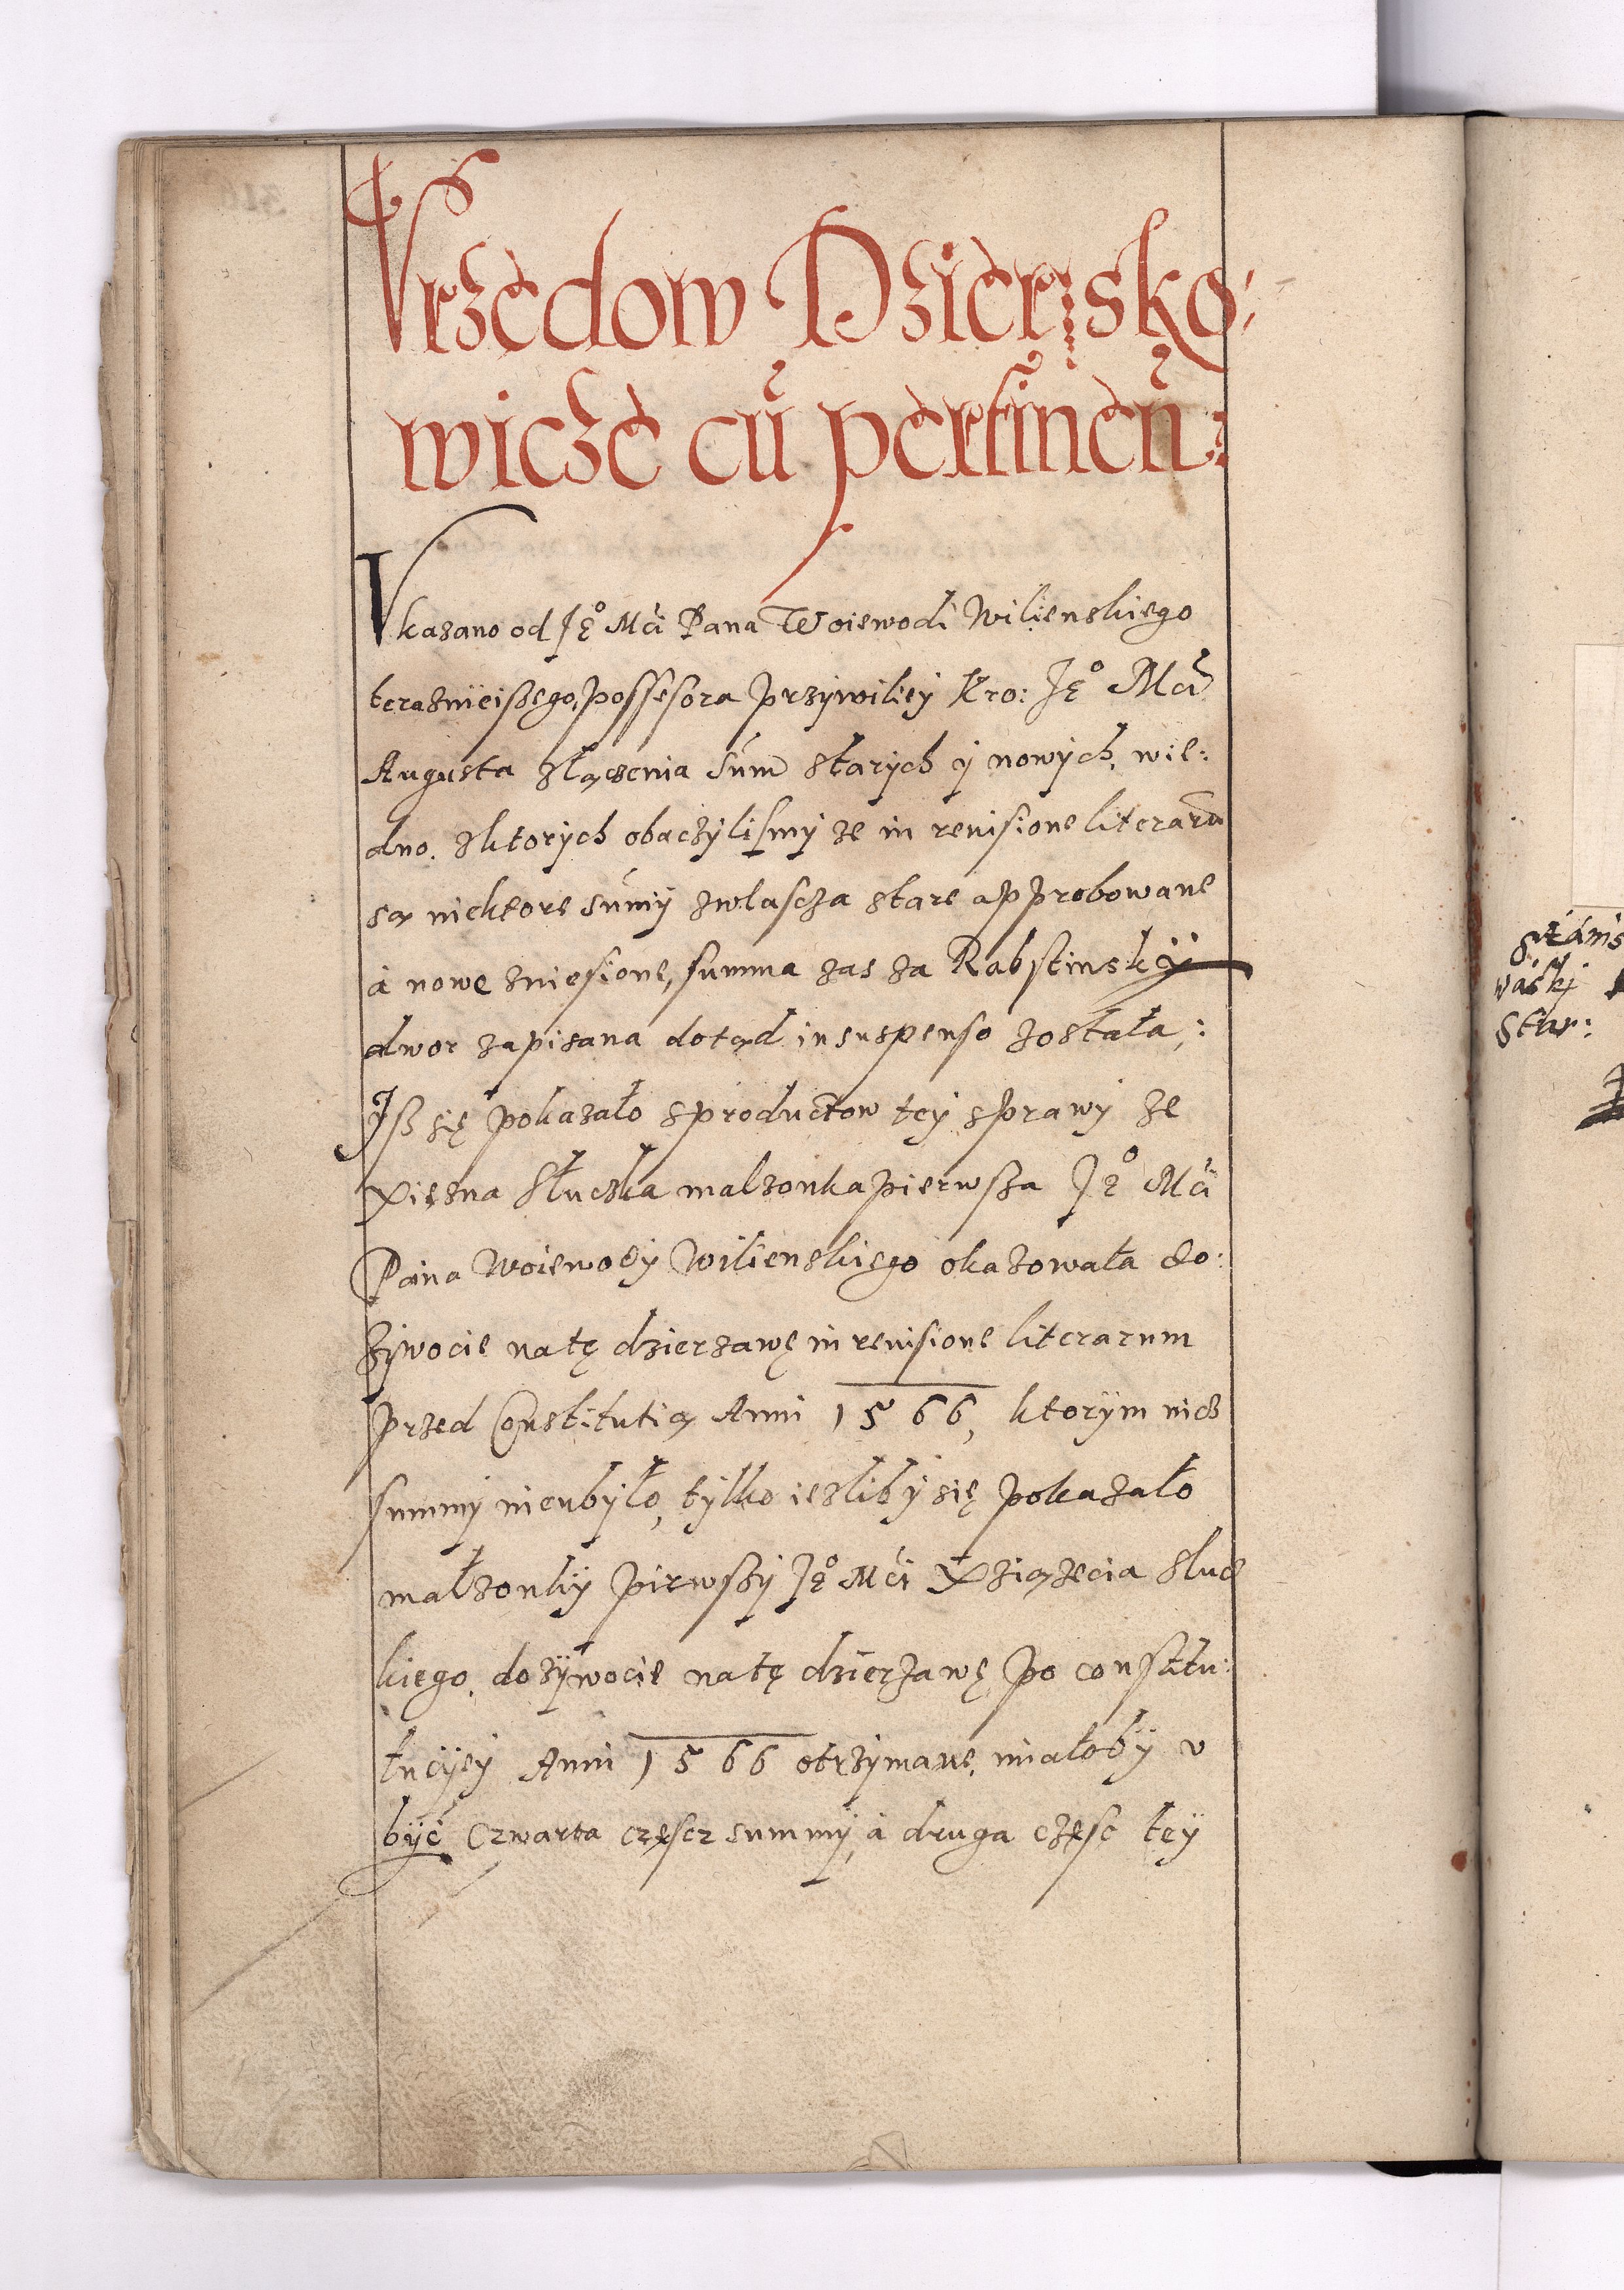 Vrzedow Dzierzsko:
wicze cū pertinen:
Vkazano od Jeº Mci Pana Woiewodi Wilienskiego
teraznieiszego possesora przywiliey Kro: Jeº Mci
Augusta złączenia sum starych y nowych, wie:
dno. z ktorych obaczylismy ze in reuisione literarū
są niektore sumy zwlascza stare approbowane
à nowe zniesione, summa zas za Rabstinsky
dwor zapisana dotąd in suspenso została,:
Jß się pokazało s productow tey sprawy ze
Xięzna Słuczka malzonka pierwsza Jeº Mci
Pana Woiewody Wilienskiego okazowała do:
zywocie na tę dzierzawę in reuisione literarum
przed Constitutią Anni 1566, ktorym nicz
summy nieubyło, tylko iesliby się pokazało
małzonky pirwszy Jeº Mci Xziązecia Sluc
kiego, dozywocie na tę dzierzawę po constitu:
tucyey Anni 1566 otrzymane, miałoby v
być czwarta czescz summy, à druga częsc tey
Stánis
wáski
Star: